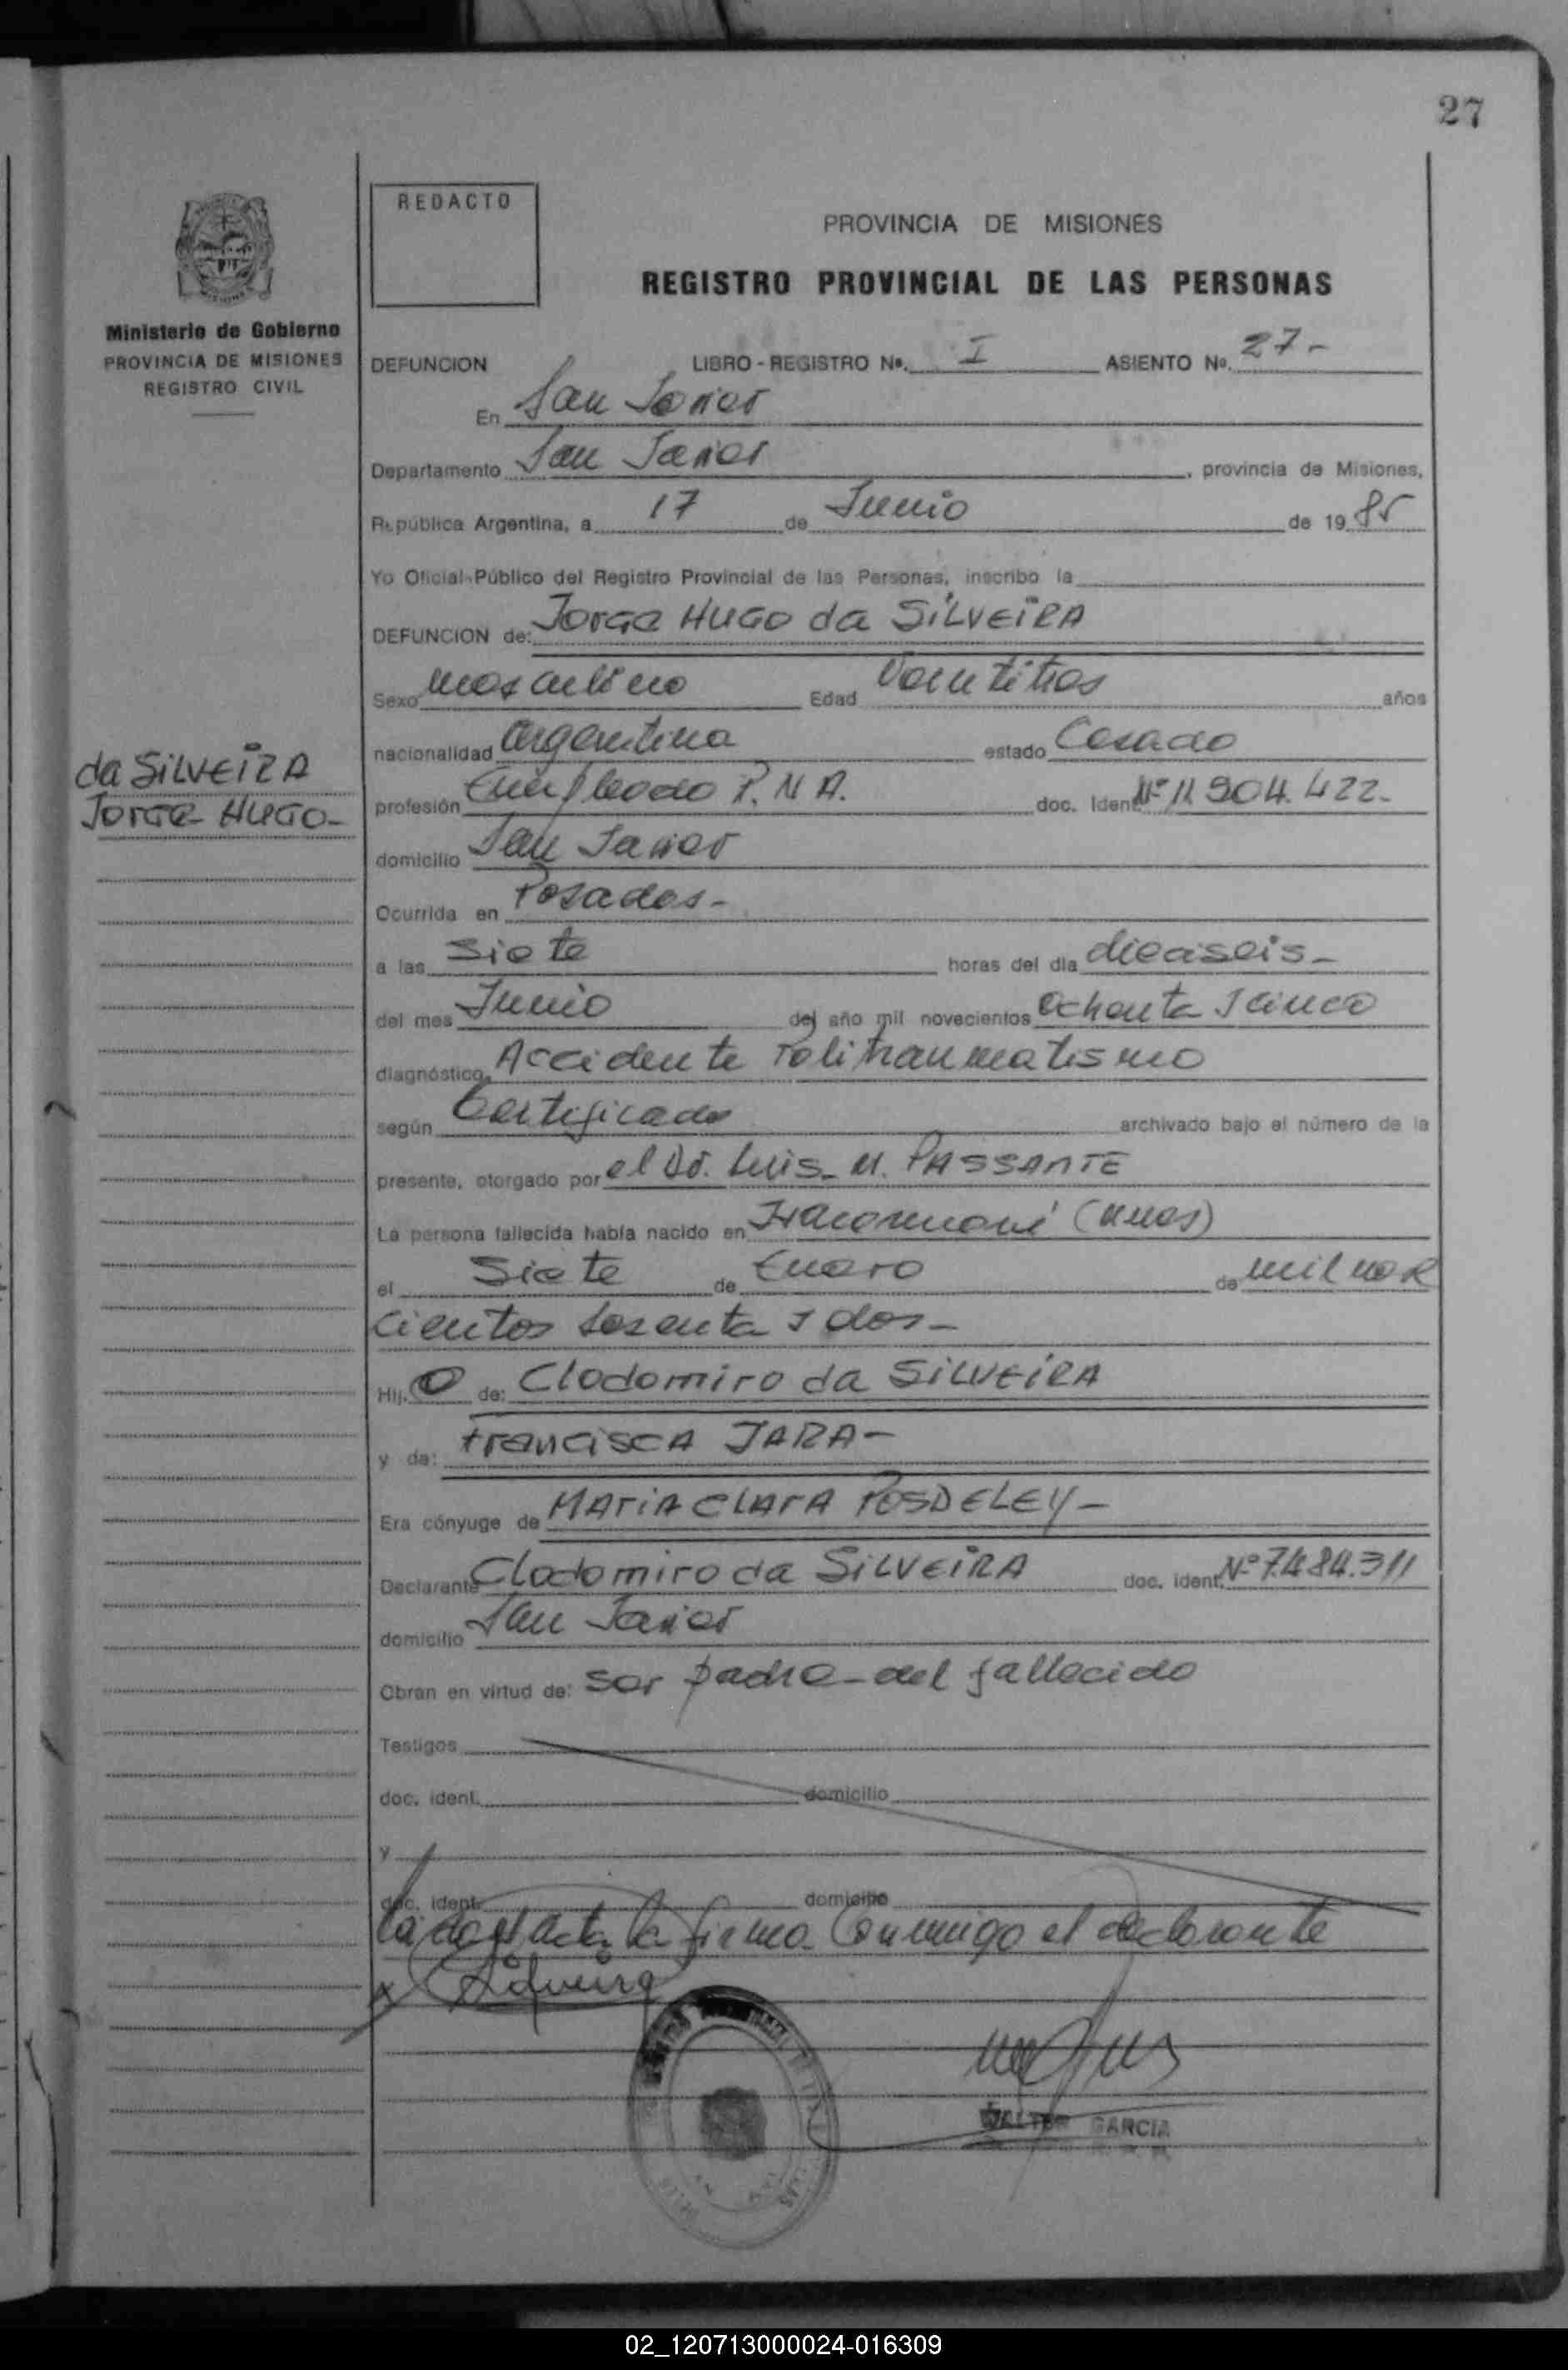 27
REDACTO
PROVINCIA DE MISIONES
REGISTRO PROVINCIAL DE LAS PERSONAS
Ministerio de Gobierno
PROVINCIA DE MISIONES
REGISTRO CIVIL
DEFUNCION LIBRO - REGISTRO Nº. I ASIENTO Nº. 27-
En San Javier
Departamento San Javier, provincia de Misiones,
República Argentina, a 17 de Junio de 1985
Yo Oficial Público del Registro Provincial de las Personas, inscribo la
DEFUNCION de: Jorge Hugo da SilveiRA
Sexo masculino Edad Veintitres años
nacionalidad argentina estado Casado
da SilveiRA
Jorge Hugo-
profesión Empleado P.N.A. doc. Ident. Nº 11.904.422-
domicilio San Javier
Ocurrida en Posadas-
a las Siete horas del día dieciseis-
del mes Junio del año mil novecientos ochenta y cinco
diagnóstico Accidente Politraumatismo
según Certificado archivado bajo el número de la
presente, otorgado por el Dr. Luis M. PASSANTE
La persona fallecida había nacido en (Mnes)
el Siete de Enero de mil nove
cientos sesenta y dos-
Hij o de: Clodomiro da SilveiRA
y de: Francisca JARA-
Era cónyuge de MARIA CLARA POSDELEY-
Declarante Clodomiro da SilveiRA doc. ident. Nº 7.484.311
domicilio San Javier
Obran en virtud de: ser padre del fallecido
Testigos
doc. ident. domicilio
y
doc. ident. domicilio
Leída el Acta la firma conmigo el declarante
WALTER GARCIA
02_120713000024-016309